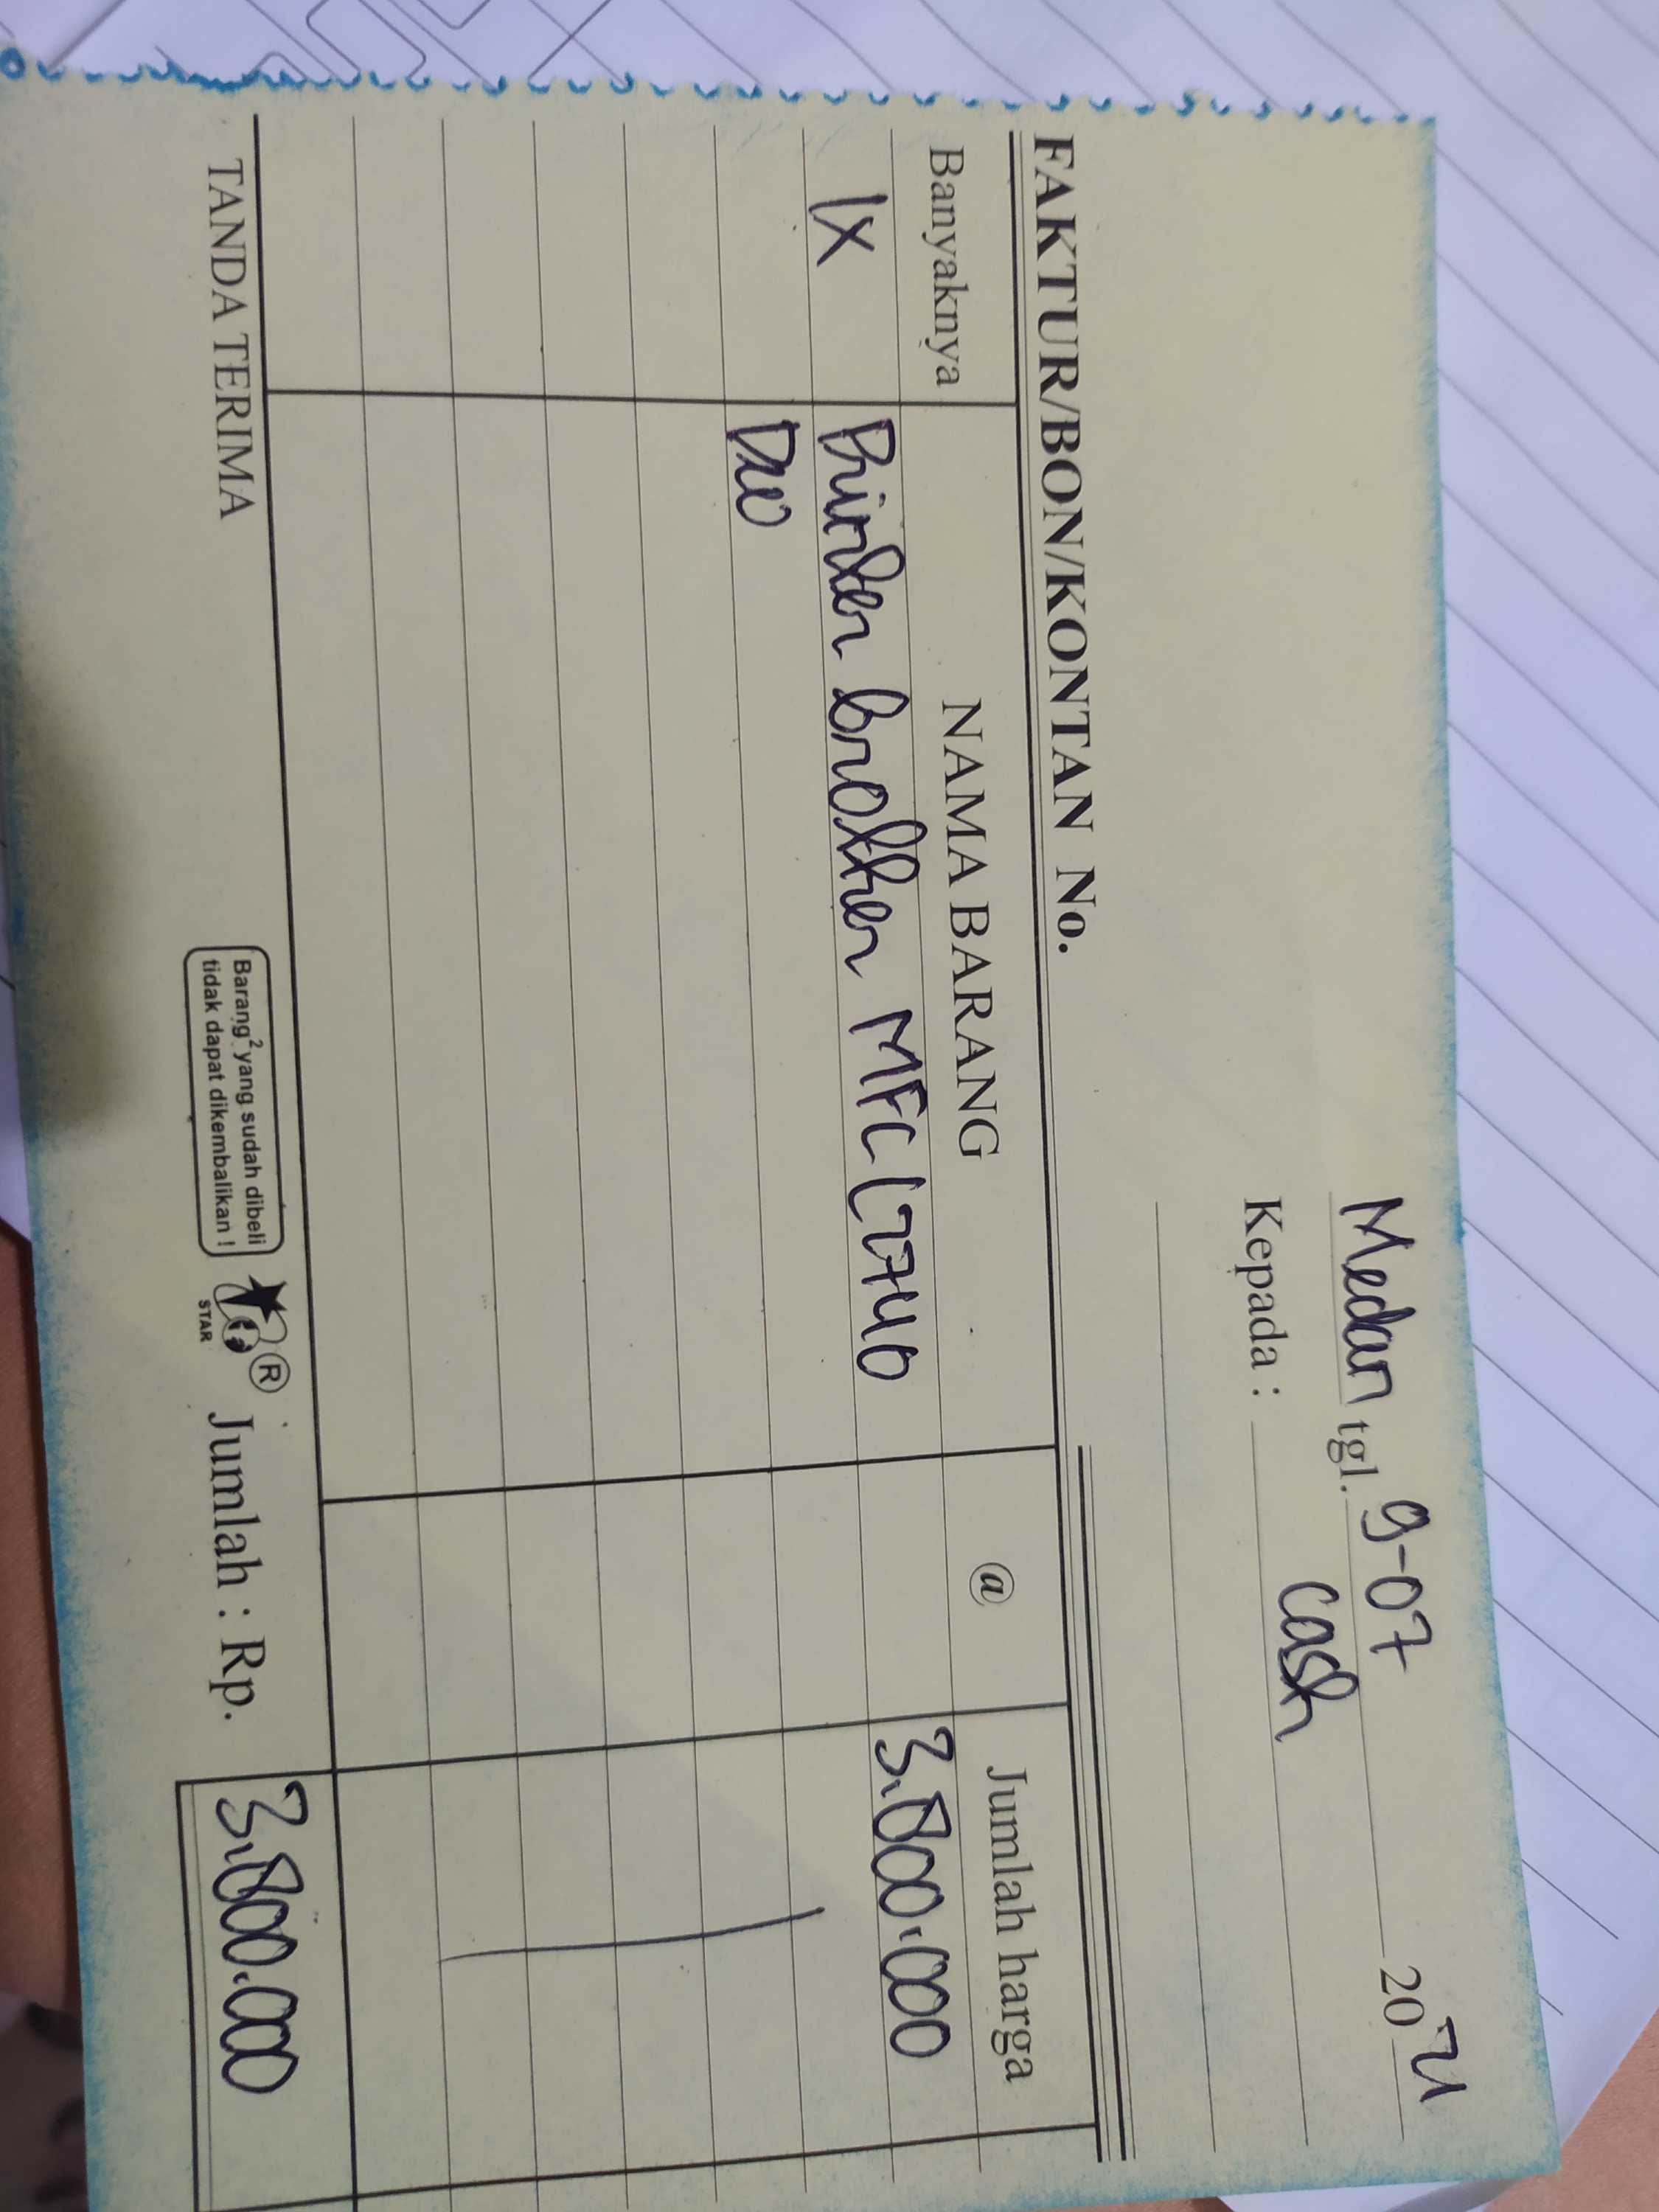 Medan tgl. 9-07 2024
Kepada : Cash
FAKTUR/BON/KONTAN No.
Banyaknya NAMA BARANG @ Jumlah harga
1x Printer brother MFC L2740 3.800.000
DW
TANDA TERIMA
Barang² yang sudah dibeli
tidak dapat dikembalikan !
STAR
®
Jumlah : Rp. 3.800.000